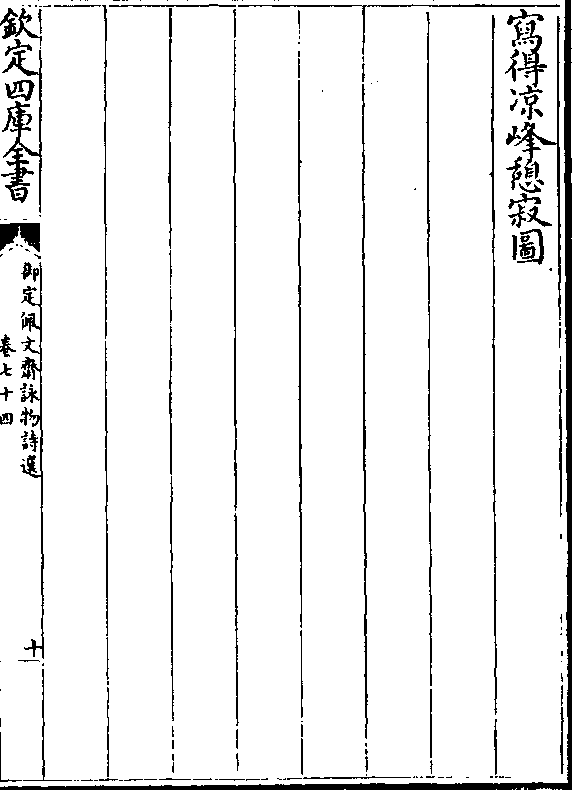 寫得凉峰憩寂圖
欽定四庫全書
御定佩文齋詠物詩選
卷七十四
十